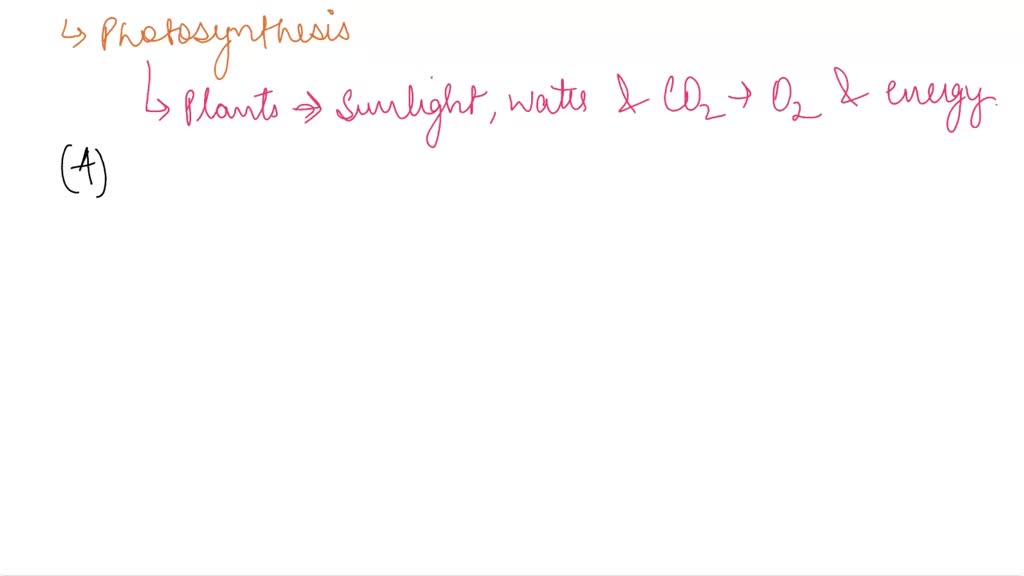 ↳ Photosynthesis
↳ Plants → Sunlight, water & CO₂ → O₂ & energy.
(A)